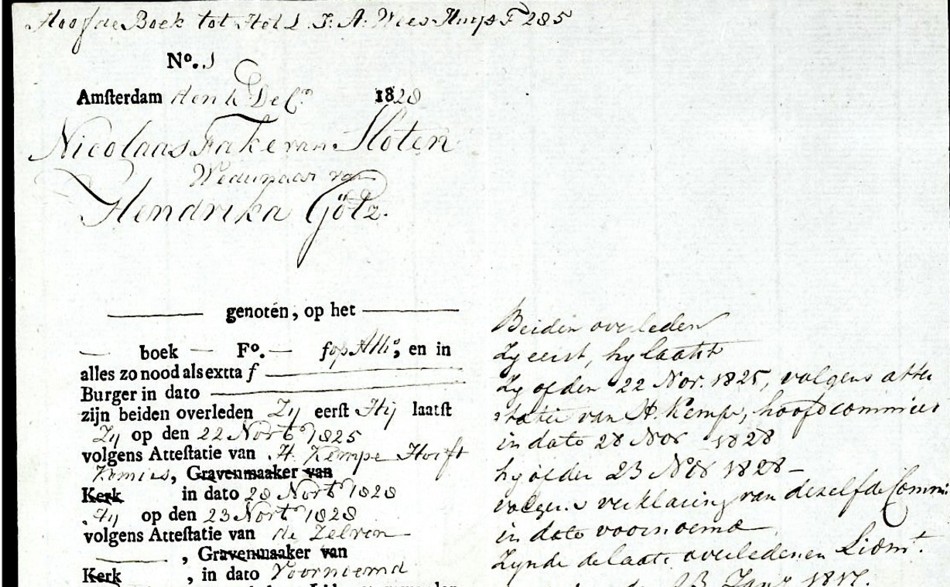 Hoofde Boek tot Hol L. F. A. Wees Huijs F 285
No. 1
Amsterdam den 4 Decr. 1828
Nicolaas Fakevan Sloten
Weduwnaar van
Hendrika Götz.
genoten, op het
boek Fo. fop All:o, en in
alles zo nood als extta f
Burger in dato
zijn beiden overleden Zij eerst Hij laatst
Zij op den 22 Novb 1825
volgens Attestatie van H. Kempe Hooft
Komies, Gravenmaaker van
Kerk in dato 28 Novb 1828
Hij op den 23 Novb 1828
volgens Attestatie van de Zelven
, Gravenmaaker van
Kerk , in dato Voorniemd
Beiden overleden
Zy eerst, hy laatst
Zy op den 22 Nov. 1825, volgens atte
statie van H. Kempe, hoofdcommies
in dato 28 Nov 1828
hy op den 23 Nov 1828 –
volgens verklaring van dezelfde Comm:
in dato voornoemd
Zynde de laatst overledenen Lidmt.
23 Jany 1817.